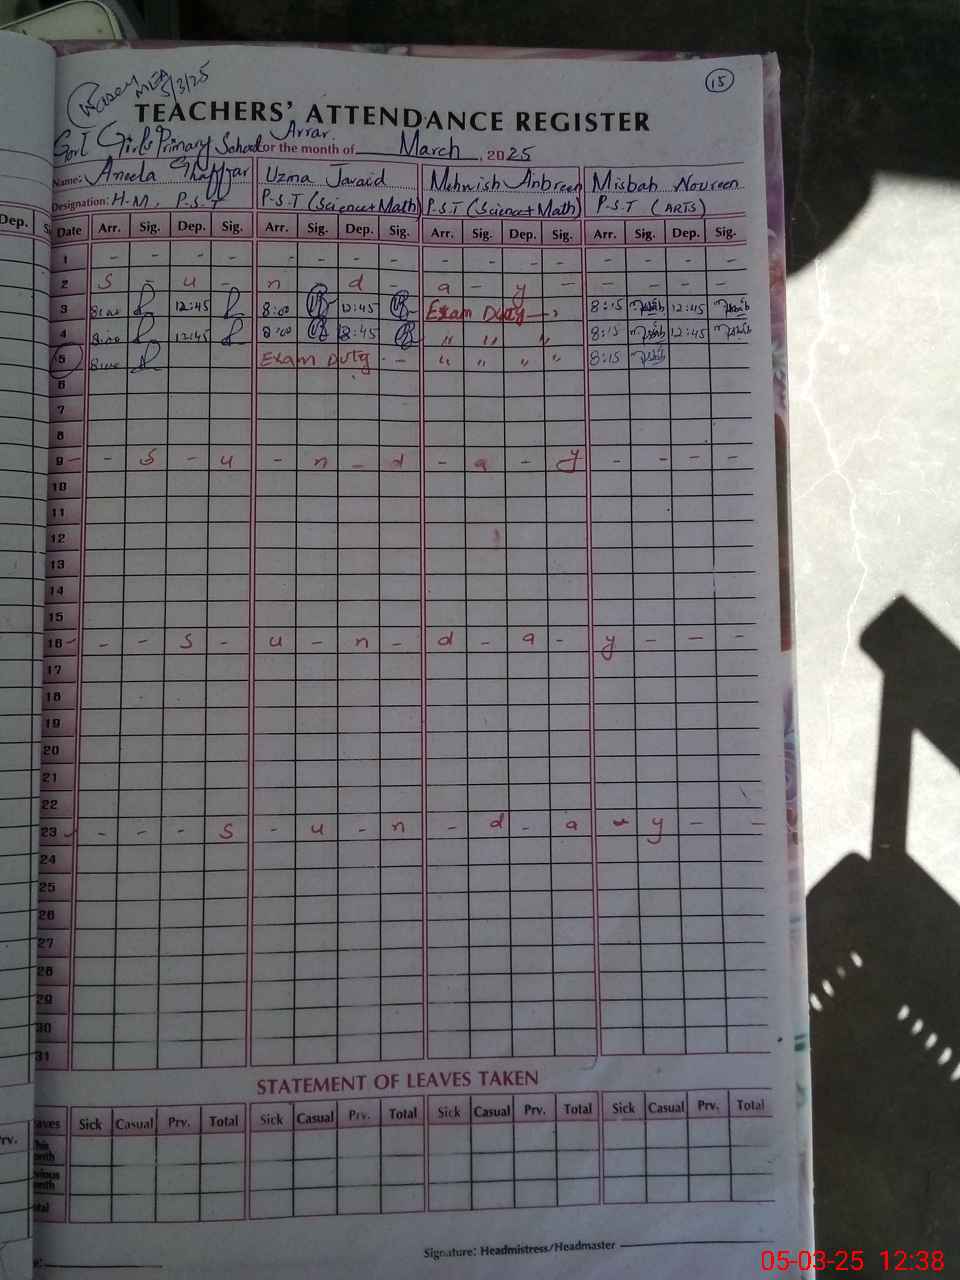 MEA
5/3/25
15
TEACHERS' ATTENDANCE REGISTER
Govt Girls Primary School Arrar. For the month of March, 2025
Name: Aneela Ghaffar Uzma Javaid Mehwish Anbreen Misbah Noureen
Designation: H.M, P.S.T P.S.T (Science+Math) P.S.T (Science+Math) P.S.T (ARTS)
Dep. Date Arr. Sig. Dep. Sig. Arr. Sig. Dep. Sig. Arr. Sig. Dep. Sig. Arr. Sig. Dep. Sig.
1 - - - - - - - - - - - - - - - -
2 S - u - n - d - a - y - - - - -
3 8:00 12:45 8:00 12:45 Exam Duty 8:15 12:45
4 8:00 12:45 8:00 12:45 " " " 8:15 12:45
5 8:00 Exam Duty - - " " " " 8:15
6
7
8
9 - - S - u - n - d - a - y - - - -
10
11
12
13
14
15
16 - - - S - u - n - d - a - y - - -
17
18
19
20
21
22
23 - - - S - u - n - d - a - y - -
24
25
26
27
28
29
30
31
STATEMENT OF LEAVES TAKEN
Prv. aves Sick Casual Prv. Total Sick Casual Prv. Total Sick Casual Prv. Total Sick Casual Prv. Total
This onth
vious onth
otal
Signature: Headmistress/Headmaster
05-03-25 12:38